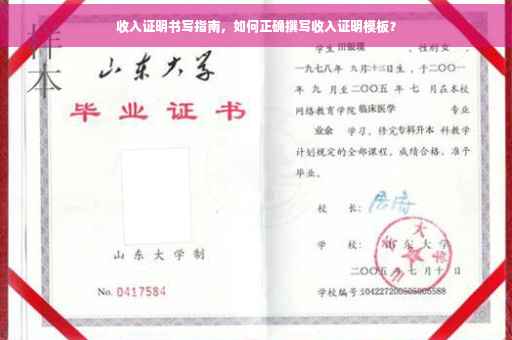 收入证明书写指南，如何正确撰写收入证明模板？
样本
山东大学
毕业证书
山东大学制
No. 0417584
学生 田
，性别 女 ，
一九七八年 九月十三日生，于二〇〇一
年 九 月至二〇〇五 年 七 月在本校
网络教育学院 临床医学 专业
业余 学习，修完 专科升本 科教学
计划规定的全部课程，成绩合格，准予
毕业。
校 长：
学 校：山东大学
二〇〇五年 七 月十 日
学校编号:104227200505005588